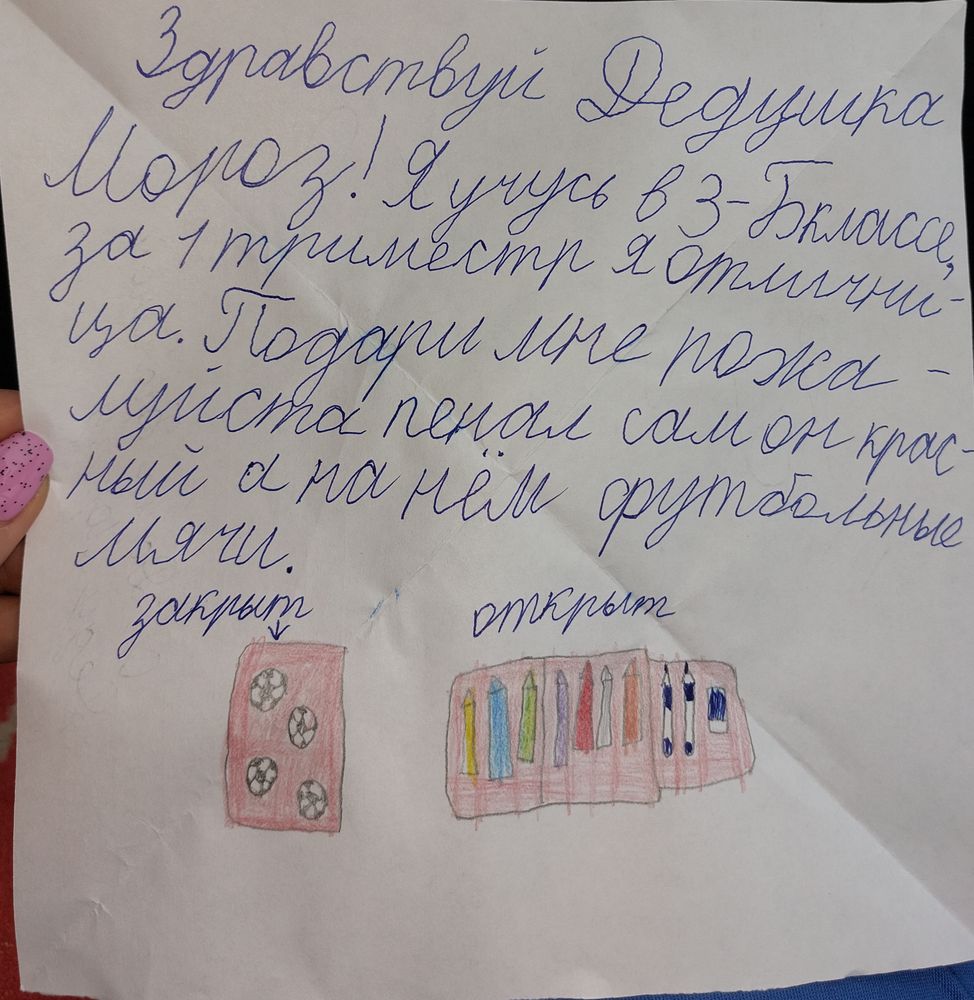 Здравствуй Дедушка
Мороз! Я учусь в 3-Бклассе,
за 1 триместр я отлични-
ца. Подари мне пожа-
луйста пенал сам он крас-
ный а на нём футбольные
мячи.
закрыт открыт